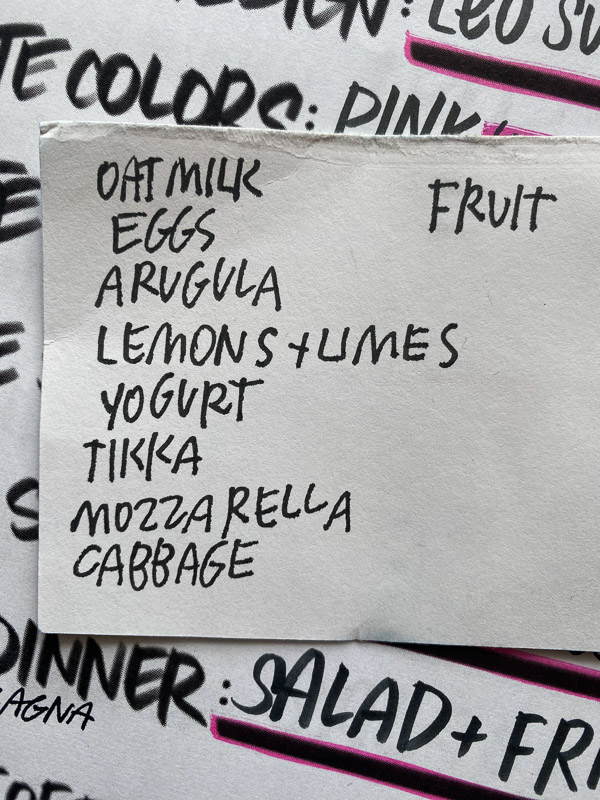 DESIGN: LEO
COLORS: PINK
OAT MILK
FRUIT
EGGS
ARUGULA
LEMONS + LIMES
YOGURT
TIKKA
MOZZARELLA
CABBAGE
DINNER: SALAD +